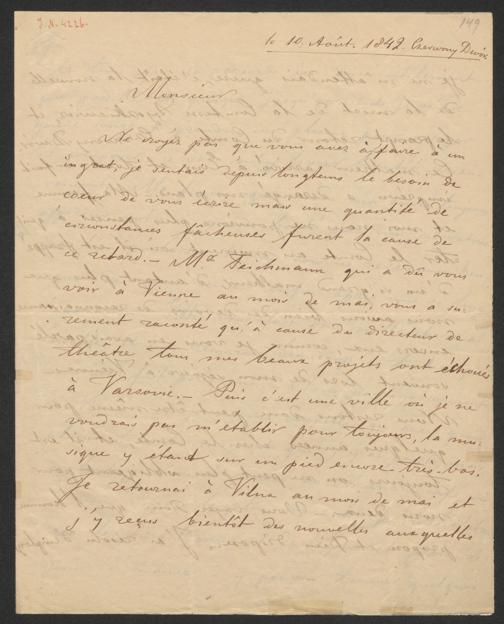 I.N. 4226.
149
le 10. Août. 1842. Czerwony Dwór
Monsieur
Ne croyez pas que vous avez à faire à un
ingrat, je sentais depuis longtems le besoin de
coeur de vous ecrire mais une quantité de
circonstances fâcheuses furent la cause de
ce retard. — Mr Teichmann qui a dû vous
voir à Vienne au mois de mai, vous a su
rement raconté qu'à cause du directeur de
théâtre tous mes beaux projets ont échoués
à Varsovie. — Puis c'est une ville où je ne
voudrais pas m'établir pour toujours, la mu
sique y étant sur un pied encore très-bas.
Je retournai à Vilna au mois de mai et
j'y reçus bientôt des nouvelles auxquelles